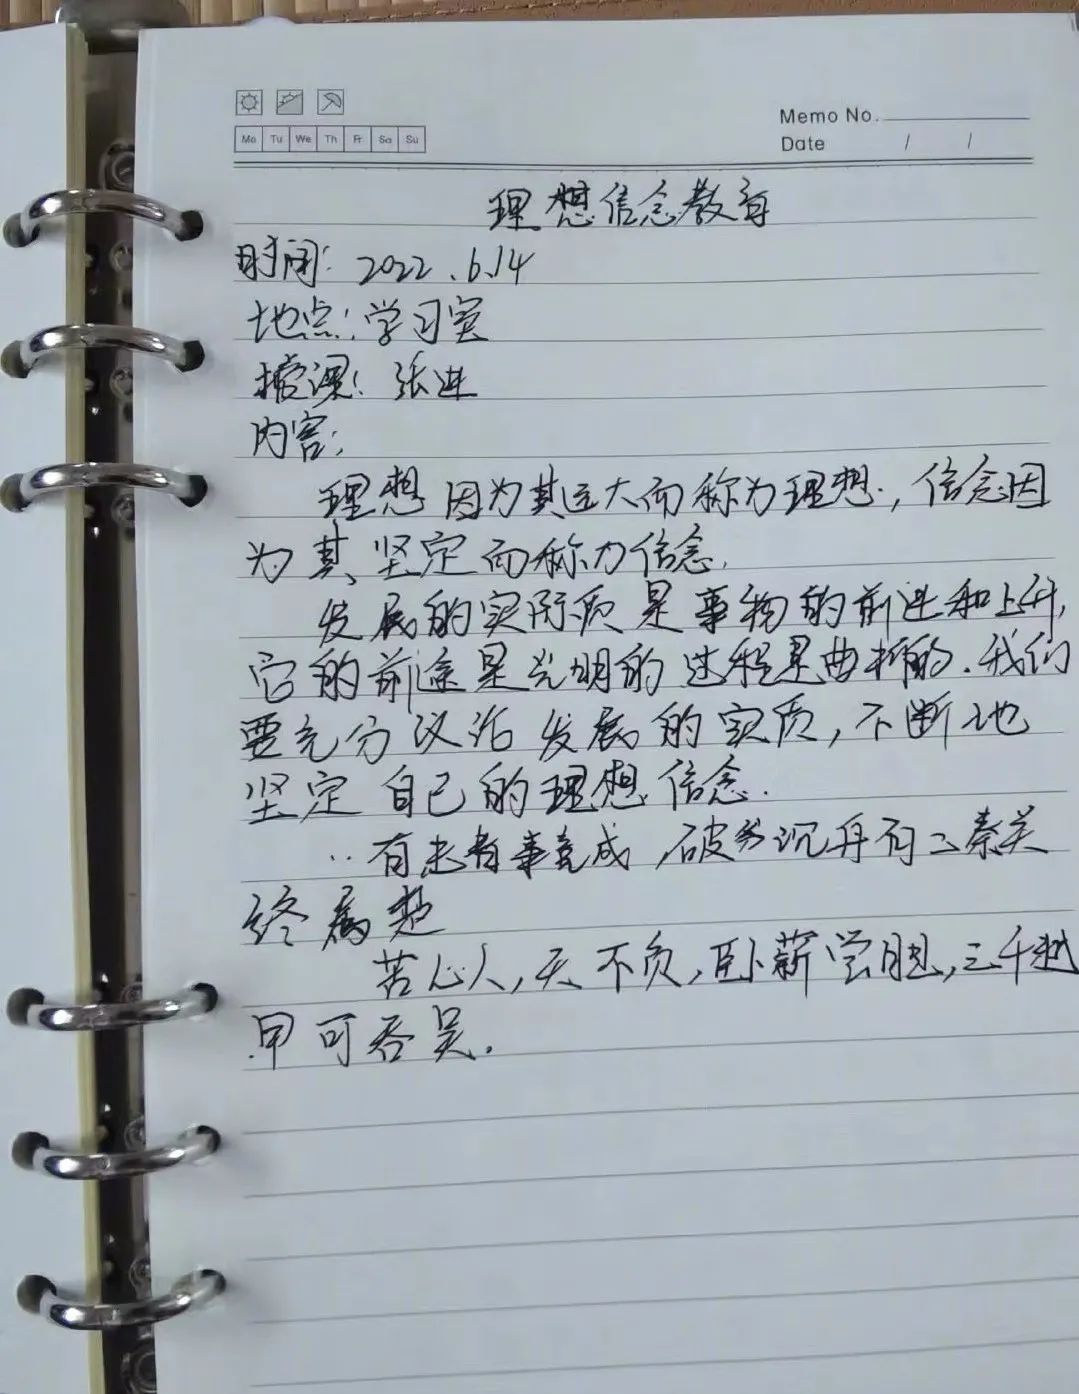 Memo No.
Mo Tu We Th Fr Sa Su
Date / /
理想信念教育
时间: 2022.6.14
地点: 学习室
授课: 张进
内容:
理想因为其远大而称为理想,信念因
为其坚定而称为信念.
发展的实际质是事物的前进和上升,
它的前途是光明的过程是曲折的.我们
要充分议活发展的实质,不断地
坚定自己的理想信念.
..有志者事竟成,破釜沉舟有二秦关
终属楚
苦心人,天不负,卧薪尝胆,三千越
甲可吞吴.